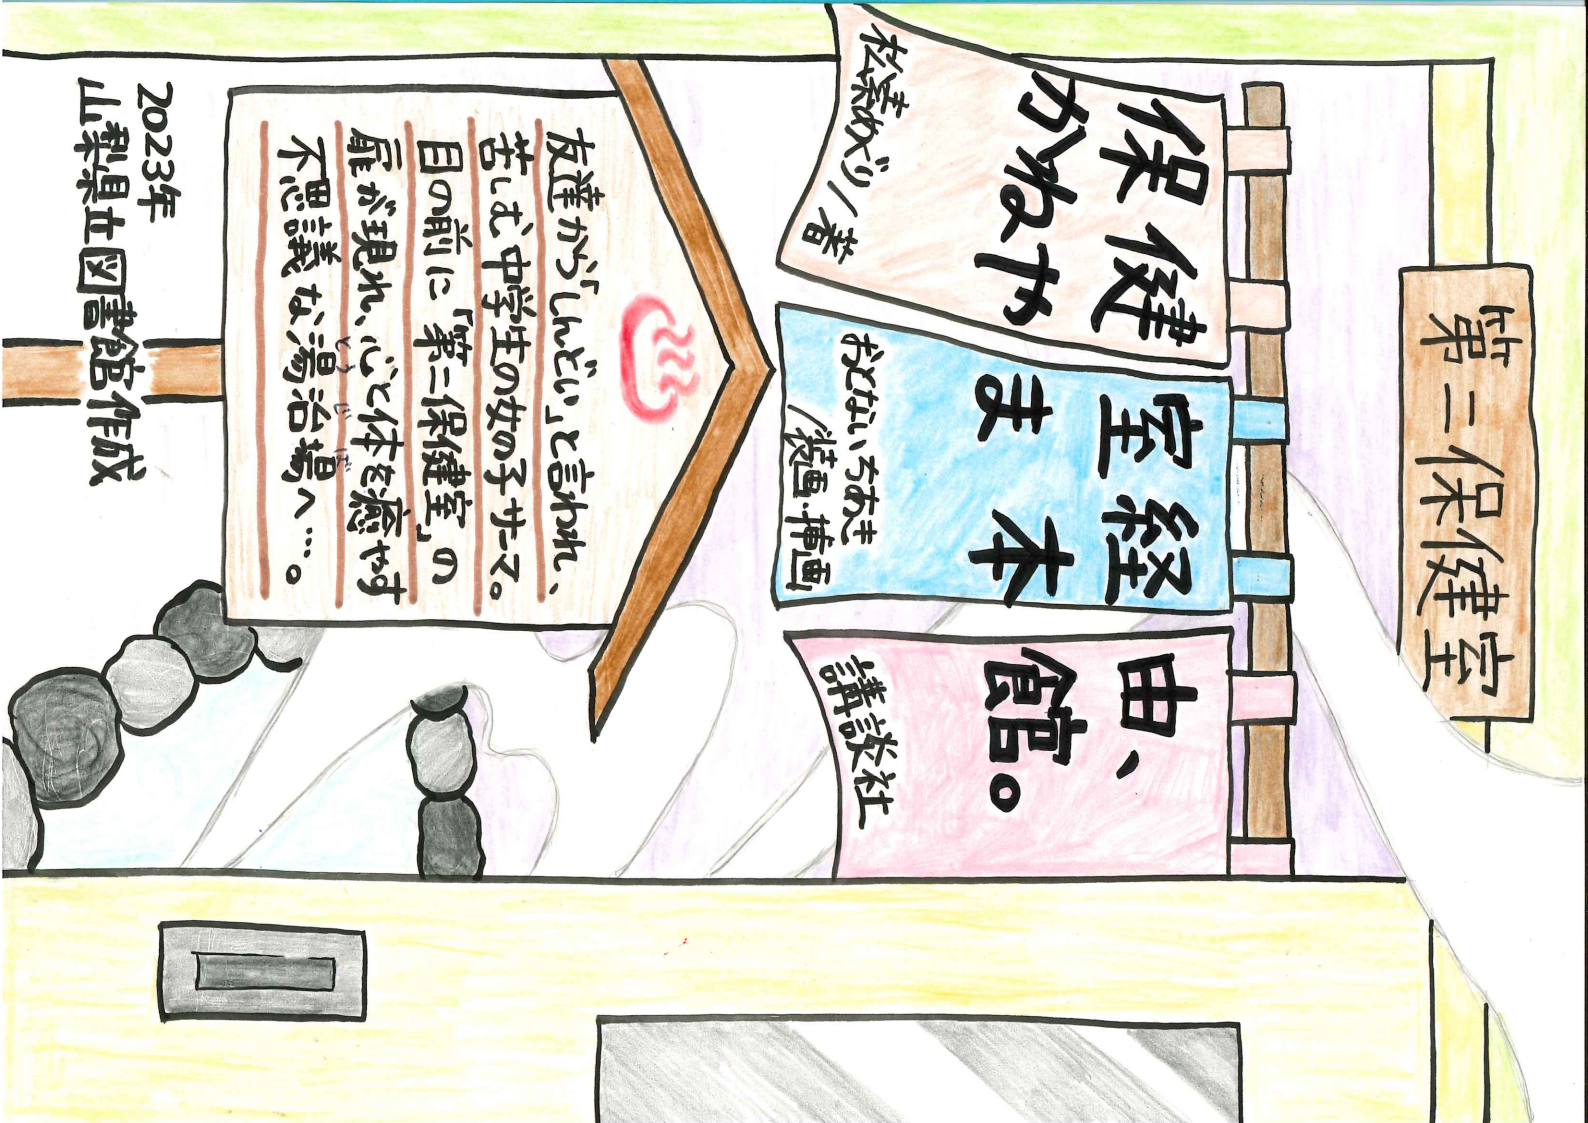 第二保健室
保健室経由、
かねやま本館。
松素めぐり/著
おとないちあき
/装画・挿画
講談社
友達から「しんどい」と言われ、
苦しむ中学生の女の子サーマ。
目の前に「第二保健室」の
扉が現れ、心と体を癒やす
とうじば
不思議な湯治場へ…。
2023年
山梨県立図書館作成